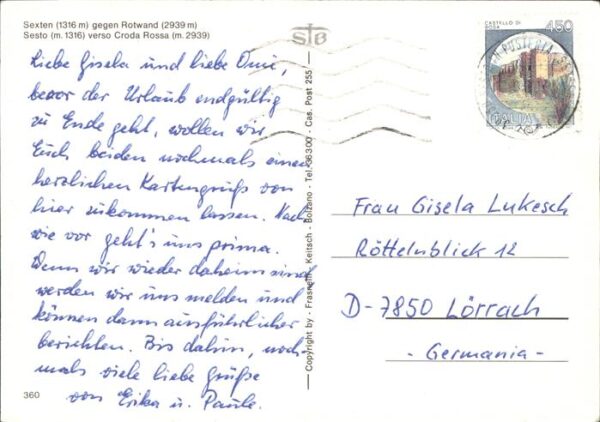 Sexten (1316 m) gegen Rotwand (2939 m)
Sesto (m. 1316) verso Croda Rossa (m. 2939)
Liebe Gisela und liebe Omi,
bevor der Urlaub endgültig
zu Ende geht, wollen wir
Euch beiden nochmals einen
herzlichen Kartengruß von
hier zukommen lassen. Nach
wie vor geht's uns prima.
Wenn wir wieder daheim sind
werden wir uns melden und
können dann ausführlicher
berichten. Bis dahin, noch-
mals viele liebe Grüße
von Erika u. Paule.
360
STB
Copyright by - Frasnelli - Keitsch - Bolzano - Tel. 36300 - Cas. Post 255
CASTELLO DI
450
ITALIA
Frau Gisela Lukesch
Röttelnblick 12
D-7850 Lörrach
- Germania -